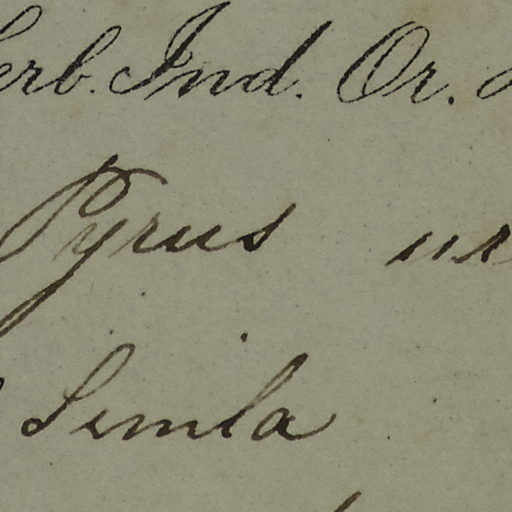 Herb. Ind. Or.
Pyrus
Simla